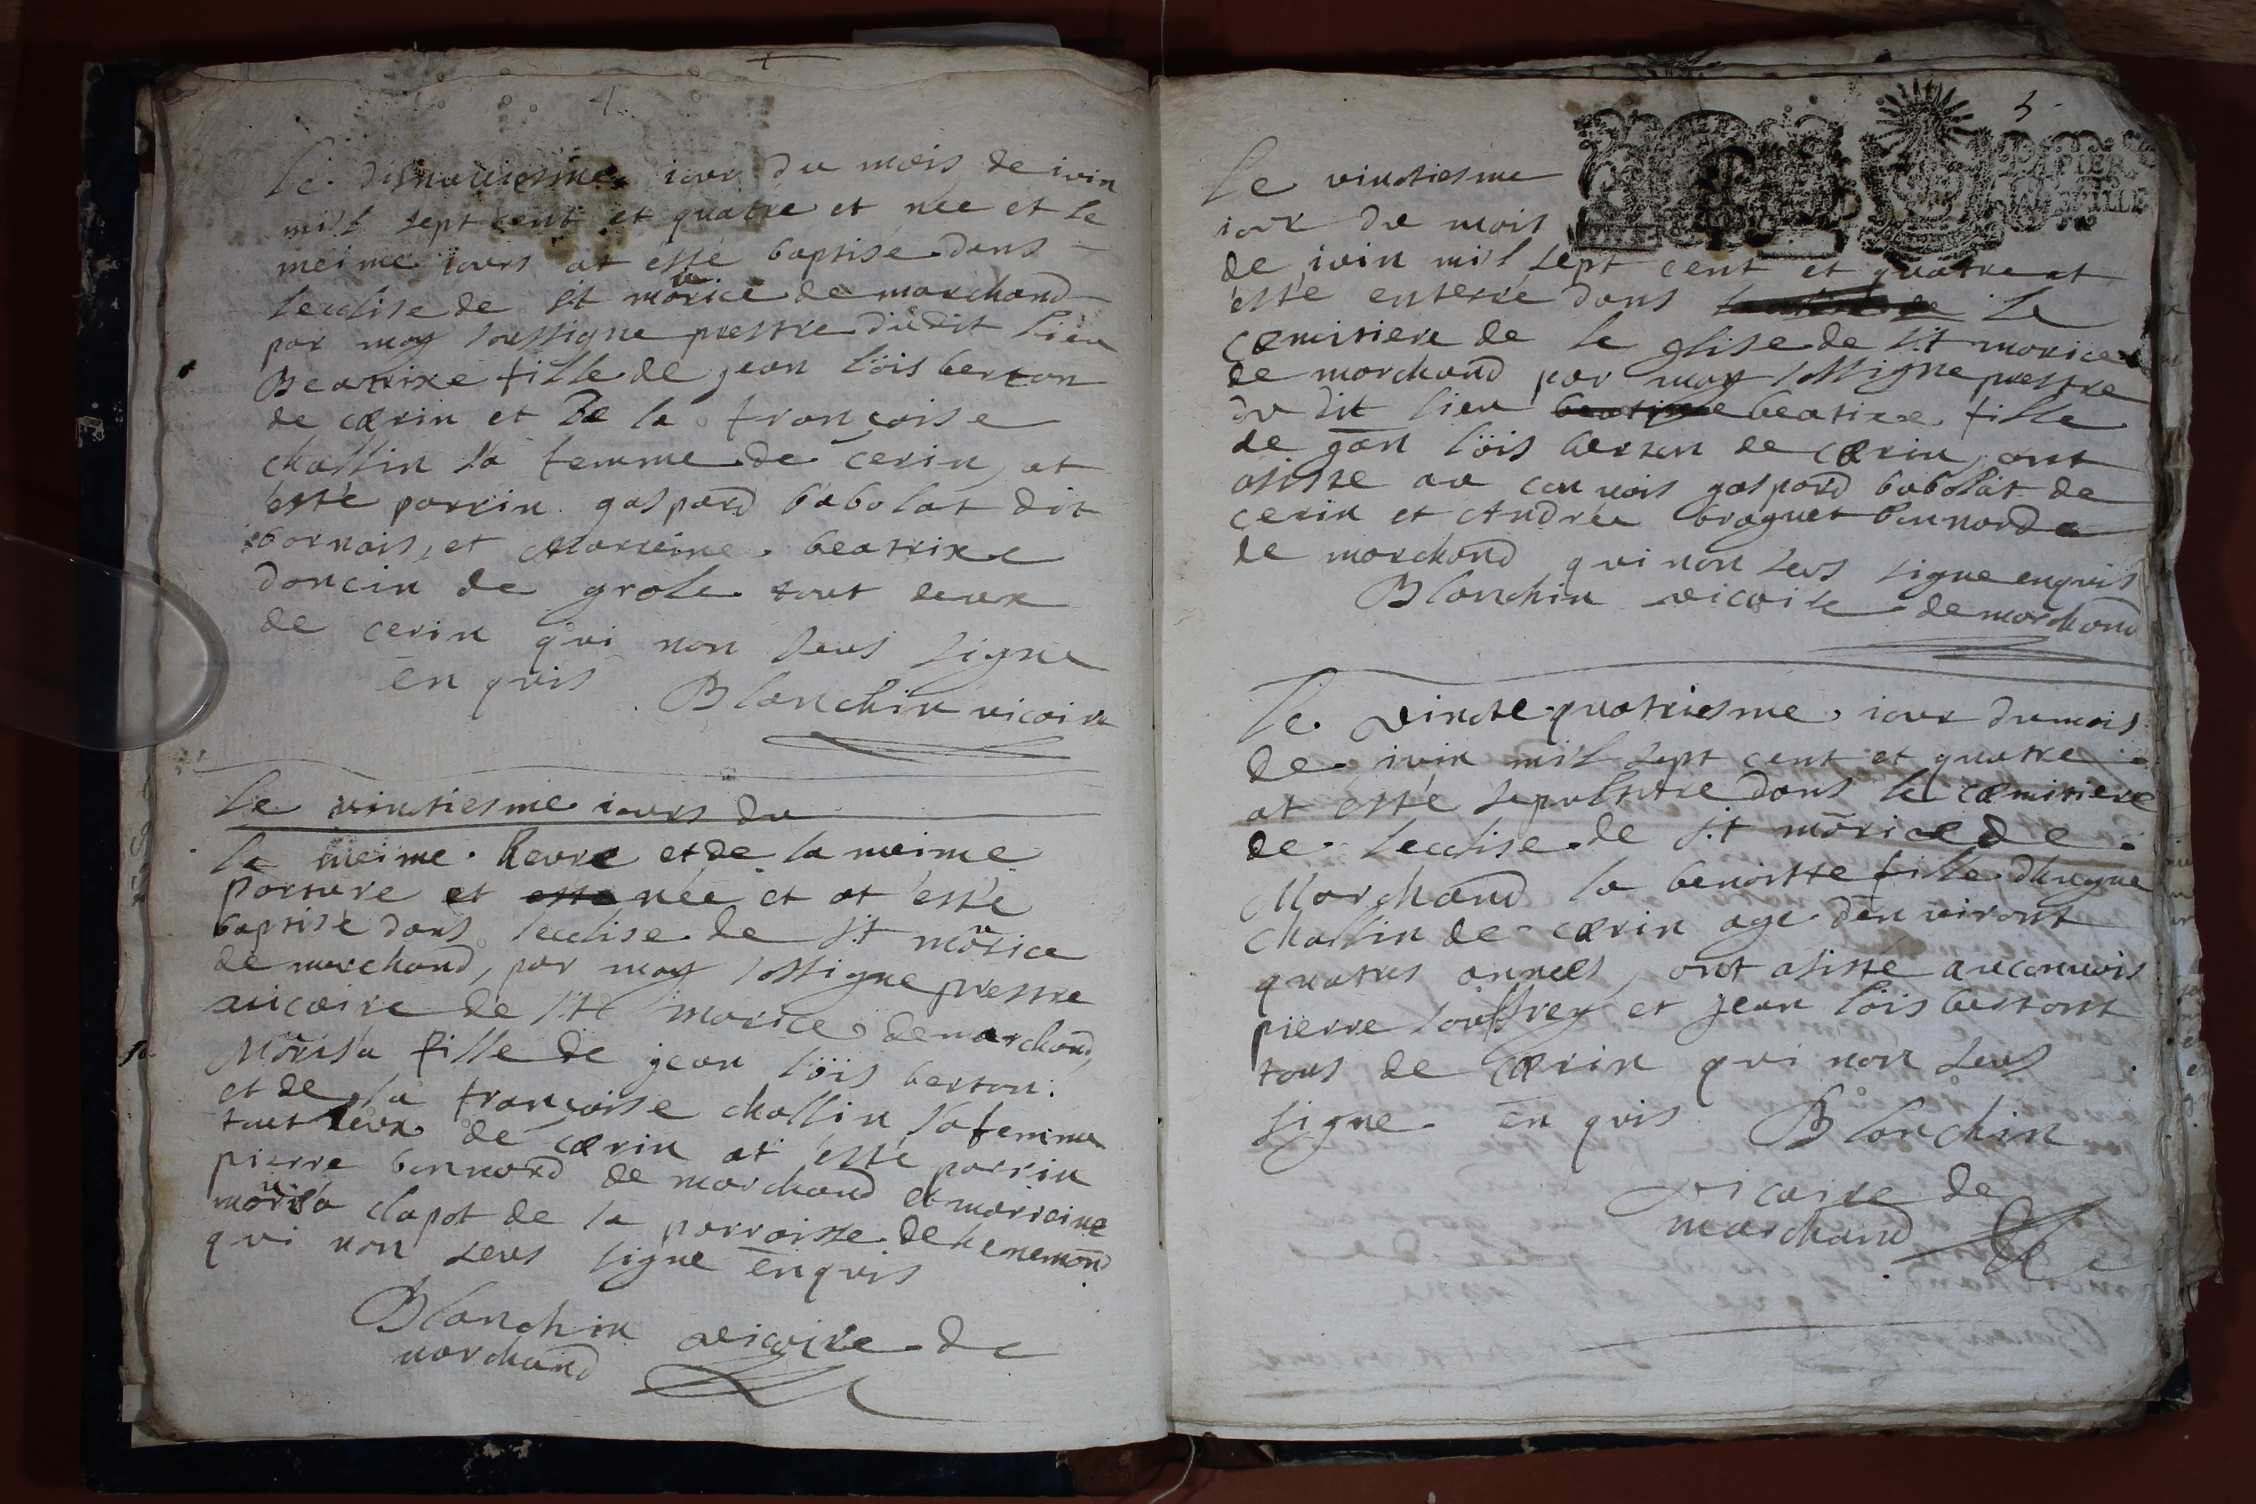 4
Le disnauiesme iour du mois de iuin
mil sept cent et quatre et née et le
meime iours at esté baptisé dans
leculise de St maurice de marchand
par moy soussigne prestre dudit lieu
Beatrixe fille de jean löis berton
de cærin et de la françoise
challin sa femme de cerin, at
esté parrin gaspard babolat dit
bornais, et Marreine beatrixe
doncin de grole tout deux
de cerin qui non seus signe
en quis
Blanchin vicaire
Le vinctiesme iours du
la meime heure et de la meime
porture et esté née et at esté
baptisé dans leculise de St maurice
de marchand, par moy sossigne prestre
vicaire de St morice de marchand,
Maurisa fille de jean löis berton
et de la françoise challin sa femme
tout deux de cærin at esté parrin
pierre bonnard de marchand et marreine
maurisa clapot de la parroisse de henemond
qui non seus signe enquis
Blanchin vicaire de
marchand
5
PAPIER
Le vinctiesme
iour du mois
de iuin mil sept cent et quatre at
esté enterré dans le
cæmitiere de le glise de St morice
de marchand par moy sossigne prestre
du dit lieu beatixe beatixe fille
de gan löis berton de cærin, ont
asisté au conuois gaspard babolat de
cerin et Andréa braguet bonnard
de marchand qui non seus signe enquis
Blanchin vicaire de marchand
Le vincte quatriesme iour du mois
de iuin mil sept cent et quatre
at esté sepulture dans le cæmitiere
de leculise de St morice de
Marchand la benoitte fille dhugue
challin de cærin age denviront
quatres annees, ont asisté au conuois
pierre souffrey et jean löis bertont
tous de cærin qui non seus
signe en quis Blanchin
vicaire de
marchand